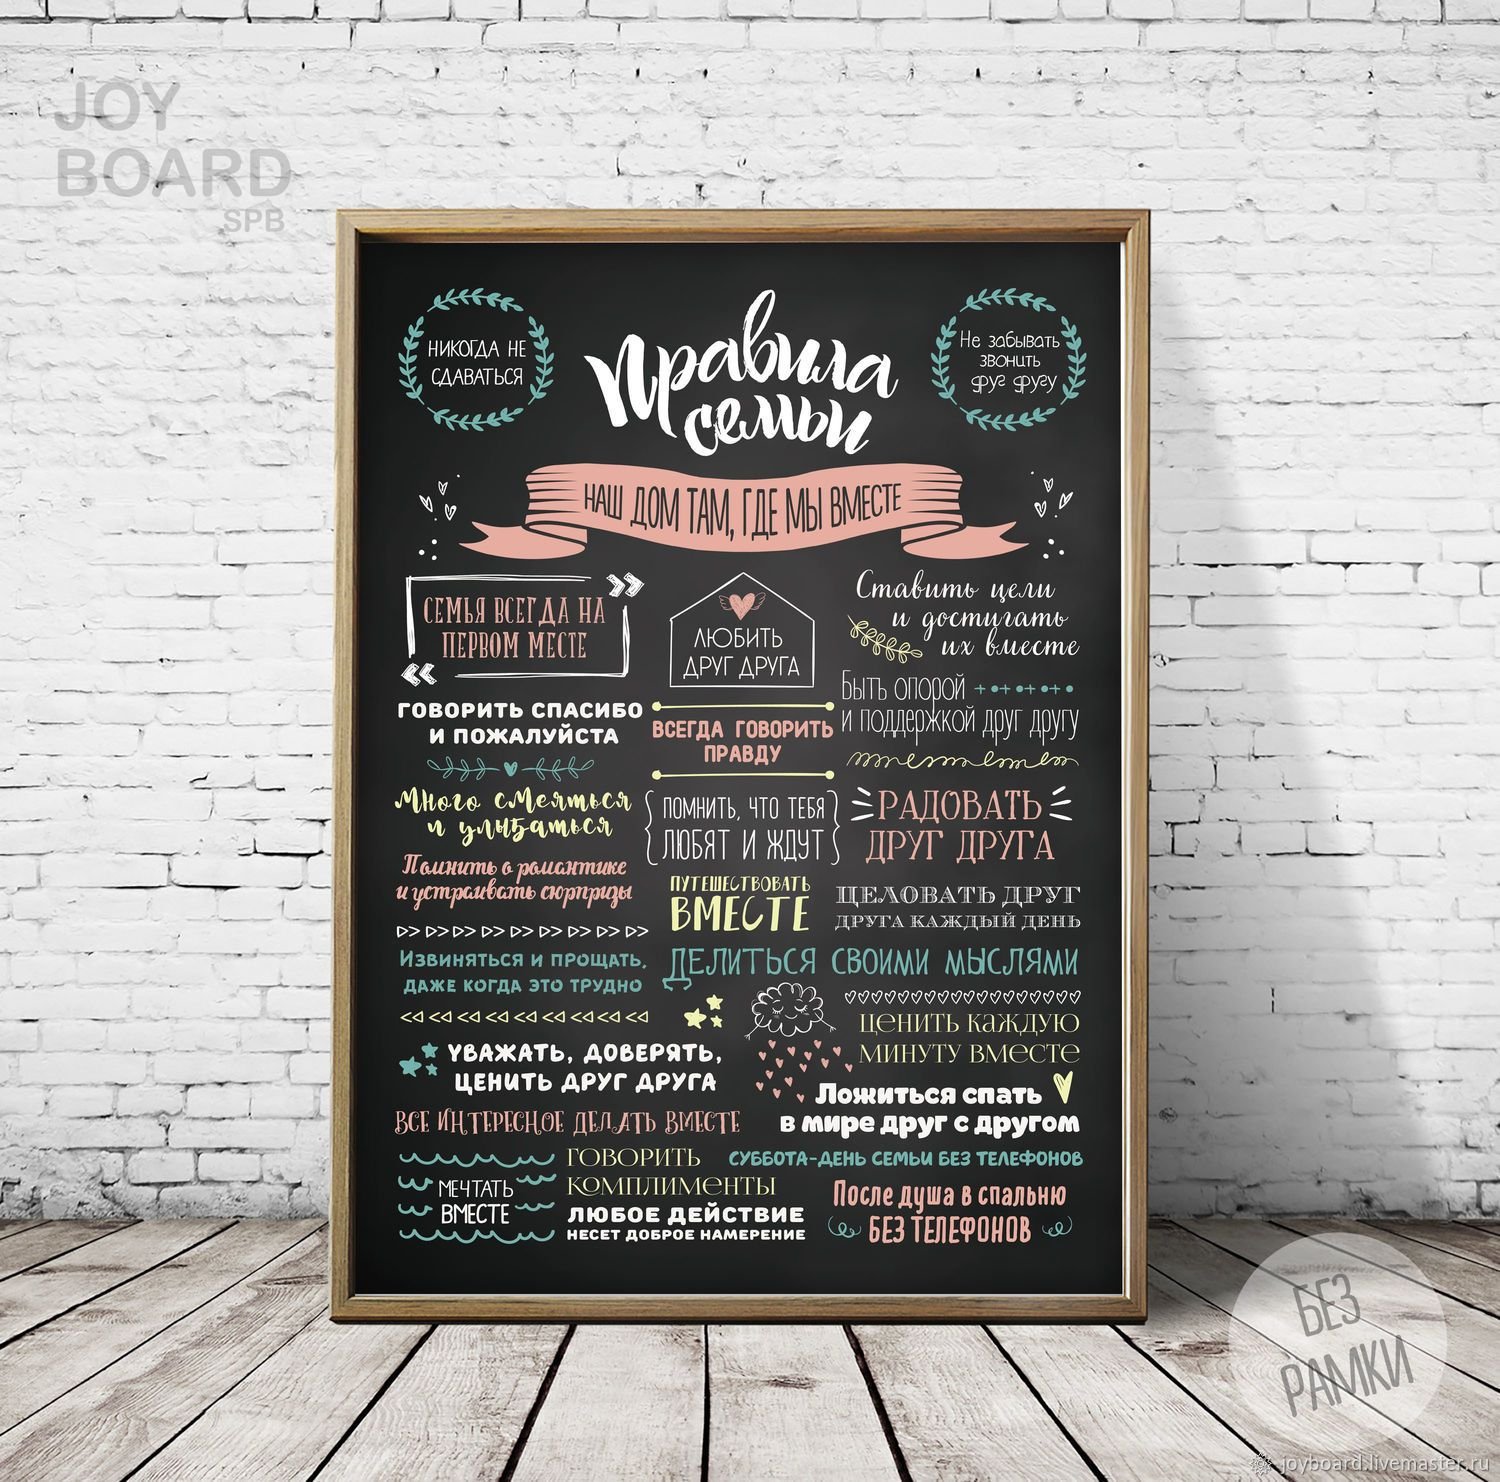 JOY
BOARD
SPB
НИКОГДА НЕ
СДАВАТЬСЯ
Правила
семьи
Не забывать
звонить
друг другу
НАШ ДОМ ТАМ, ГДЕ МЫ ВМЕСТЕ
СЕМЬЯ ВСЕГДА НА
ПЕРВОМ МЕСТЕ
ЛЮБИТЬ
ДРУГ ДРУГА
Ставить цели
и достигать
их вместе
Быть опорой
и поддержкой друг другу
ГОВОРИТЬ СПАСИБО
И ПОЖАЛУЙСТА
ВСЕГДА ГОВОРИТЬ
ПРАВДУ
Много смеяться
и улыбаться
ПОМНИТЬ, ЧТО ТЕБЯ
ЛЮБЯТ И ЖДУТ
РАДОВАТЬ
ДРУГ ДРУГА
Помнить о романтике
и устраивать сюрпризы
ПУТЕШЕСТВОВАТЬ
ВМЕСТЕ
ЦЕЛОВАТЬ ДРУГ
ДРУГА КАЖДЫЙ ДЕНЬ
Извиняться и прощать,
даже когда это трудно
ДЕЛИТЬСЯ СВОИМИ МЫСЛЯМИ
ЦЕНИТЬ КАЖДУЮ
МИНУТУ ВМЕСТЕ
УВАЖАТЬ, ДОВЕРЯТЬ,
ЦЕНИТЬ ДРУГ ДРУГА
Ложиться спать
в мире друг с другом
ВСЕ ИНТЕРЕСНОЕ ДЕЛАТЬ ВМЕСТЕ
МЕЧТАТЬ
ВМЕСТЕ
ГОВОРИТЬ
КОМПЛИМЕНТЫ
ЛЮБОЕ ДЕЙСТВИЕ
НЕСЕТ ДОБРОЕ НАМЕРЕНИЕ
СУББОТА-ДЕНЬ СЕМЬИ БЕЗ ТЕЛЕФОНОВ
После душа в спальню
БЕЗ ТЕЛЕФОНОВ
БЕЗ
РАМКИ
joyboard.livemaster.ru